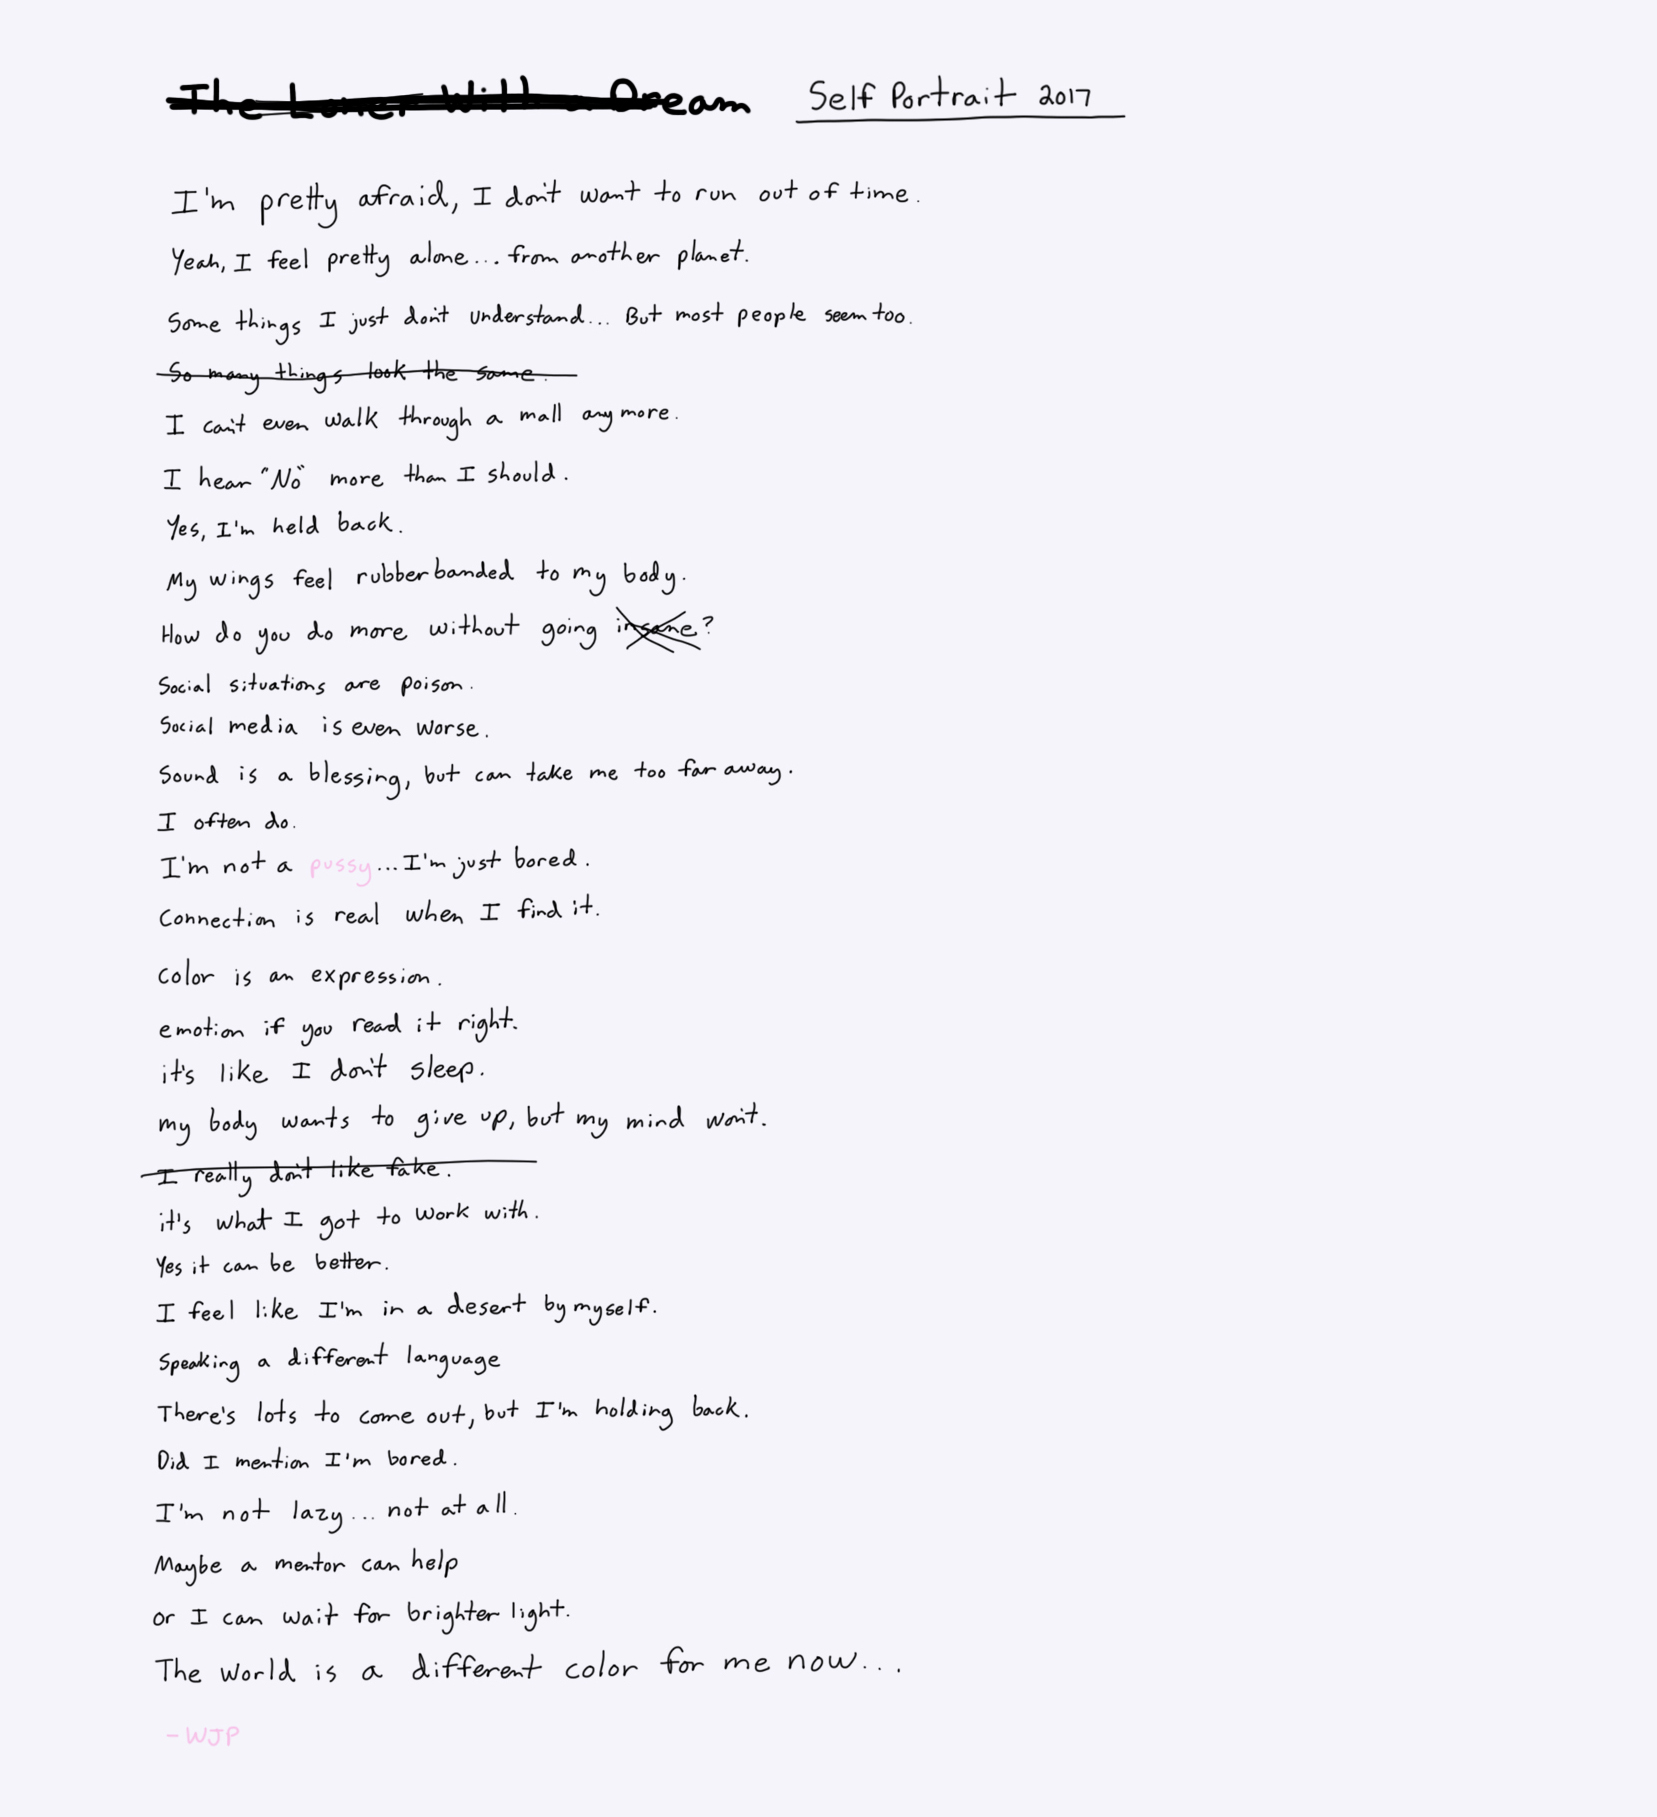 The Loner With a Dream Self Portrait 2017
I'm pretty afraid, I don't want to run out of time.
Yeah, I feel pretty alone... from another planet.
Some things I just don't understand... But most people seem too.
So many things look the same.
I can't even walk through a mall anymore.
I hear "No" more than I should.
Yes, I'm held back.
My wings feel rubberbanded to my body.
How do you do more without going insane?
Social situations are poison.
Social media is even worse.
Sound is a blessing, but can take me too far away.
I often do.
I'm not a pussy... I'm just bored.
Connection is real when I find it.
color is an expression.
emotion if you read it right.
it's like I don't sleep.
my body wants to give up, but my mind won't.
I really don't like fake.
it's what I got to work with.
Yes it can be better.
I feel like I'm in a desert by myself.
Speaking a different language
There's lots to come out, but I'm holding back.
Did I mention I'm bored.
I'm not lazy... not at all.
Maybe a mentor can help
or I can wait for brighter light.
The world is a different color for me now...
- WJP